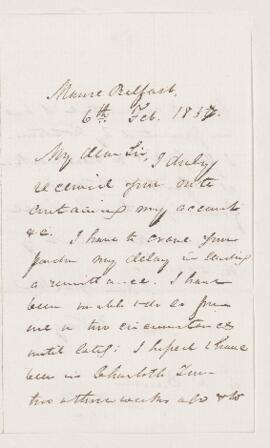 Manse Belfast,
6th Feb. 1857.
My dear Sir, I duly
received your note
containing my account
&c. I have to crave your
pardon my delay in sending
a remittance. I have
been unable to do so from
one or two circumstances
until lately: I hoped to have
been in Charlotte Town
two or three weeks ago & to